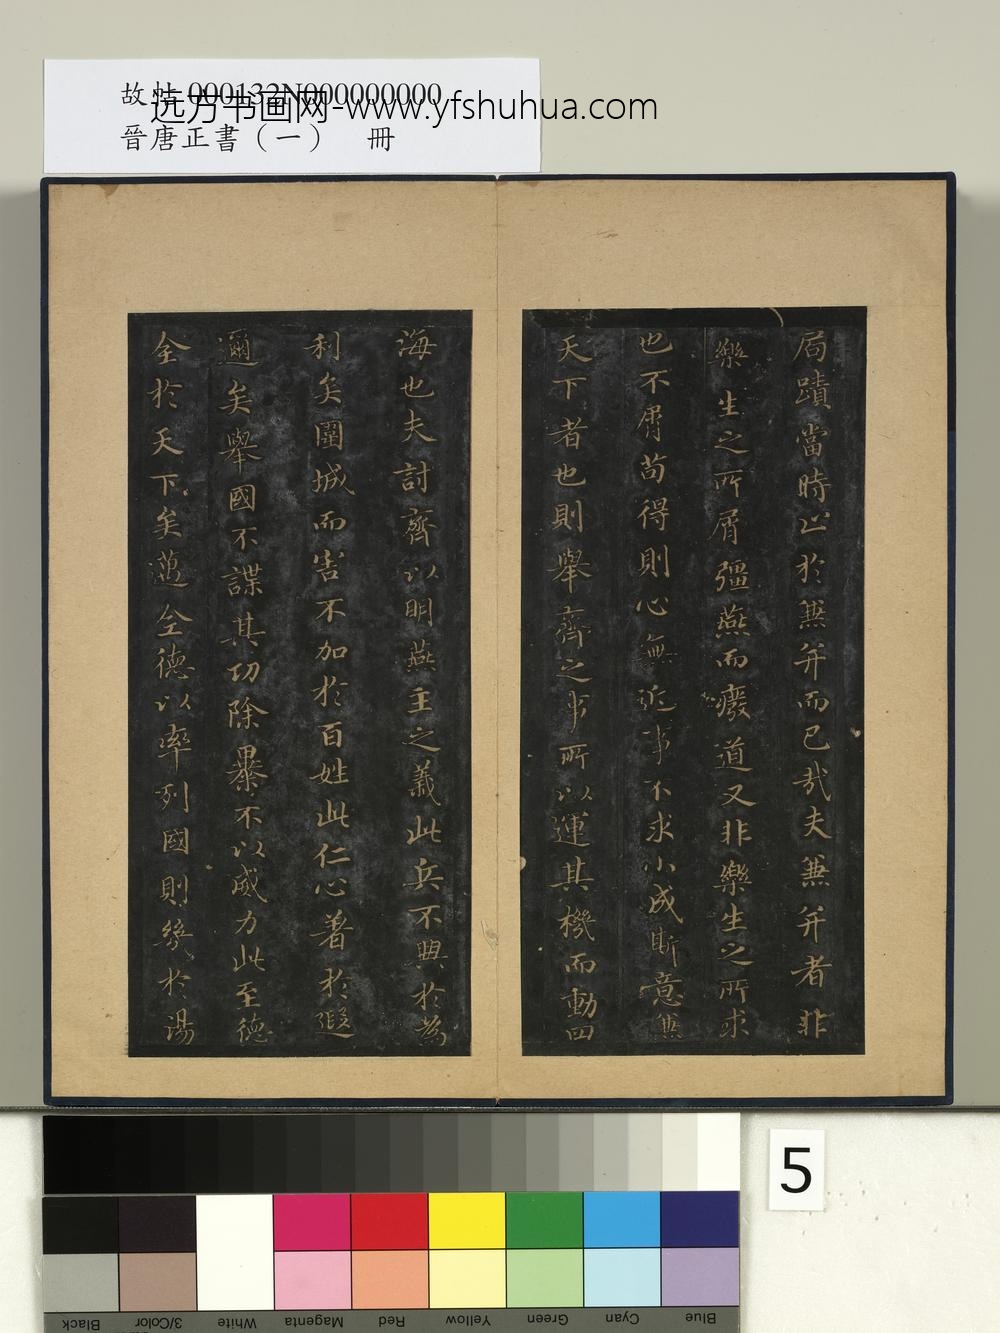 故帖 000132N000000000
远方书画网-www.yfshuhua.com
晉唐正書（一） 冊
局蹟當時止於兼并而已哉夫兼并者非
樂生之所屑彊燕而癈道又非樂生之所求
也不屑茍得則心無近事不求小成斯意兼
天下者也則舉齊之事所以運其機而動四
海也夫討齊以明燕主之義此兵不興於為
利矣圍城而害不加於百姓此仁心著於遐
邇矣舉國不謀其功除暴不以威力此至德
全於天下矣邁全德以率列國則幾於湯
5
Black
3/Color
White
Magenta
Red
Yellow
Green
Cyan
Blue